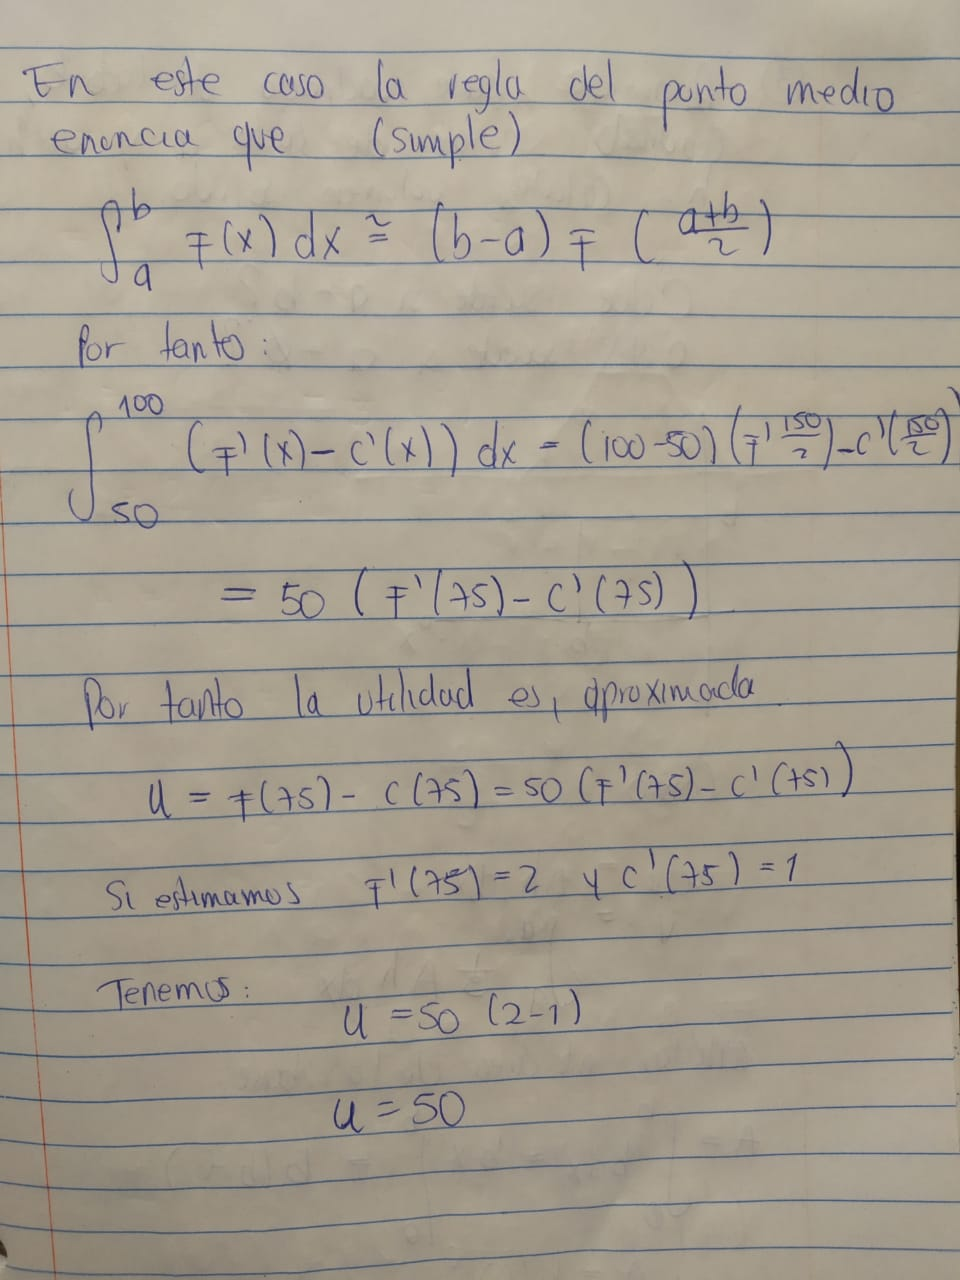 En este caso la regla del punto medio
enuncia que (simple)
∫_a^b F(x) dx ≅ (b-a) F ( (a+b)/2 )
Por tanto:
∫_50^100 (F'(x) - C'(x)) dx = (100-50) (F' 150/2) - C' (150/2))
= 50 ( F'(75) - C'(75) )
Por tanto la utilidad es, aproximada
U = F(75) - C(75) = 50 (F'(75) - C'(75))
Si estimamos F'(75) = 2 y C'(75) = 1
Tenemos:
U = 50 (2-1)
U = 50